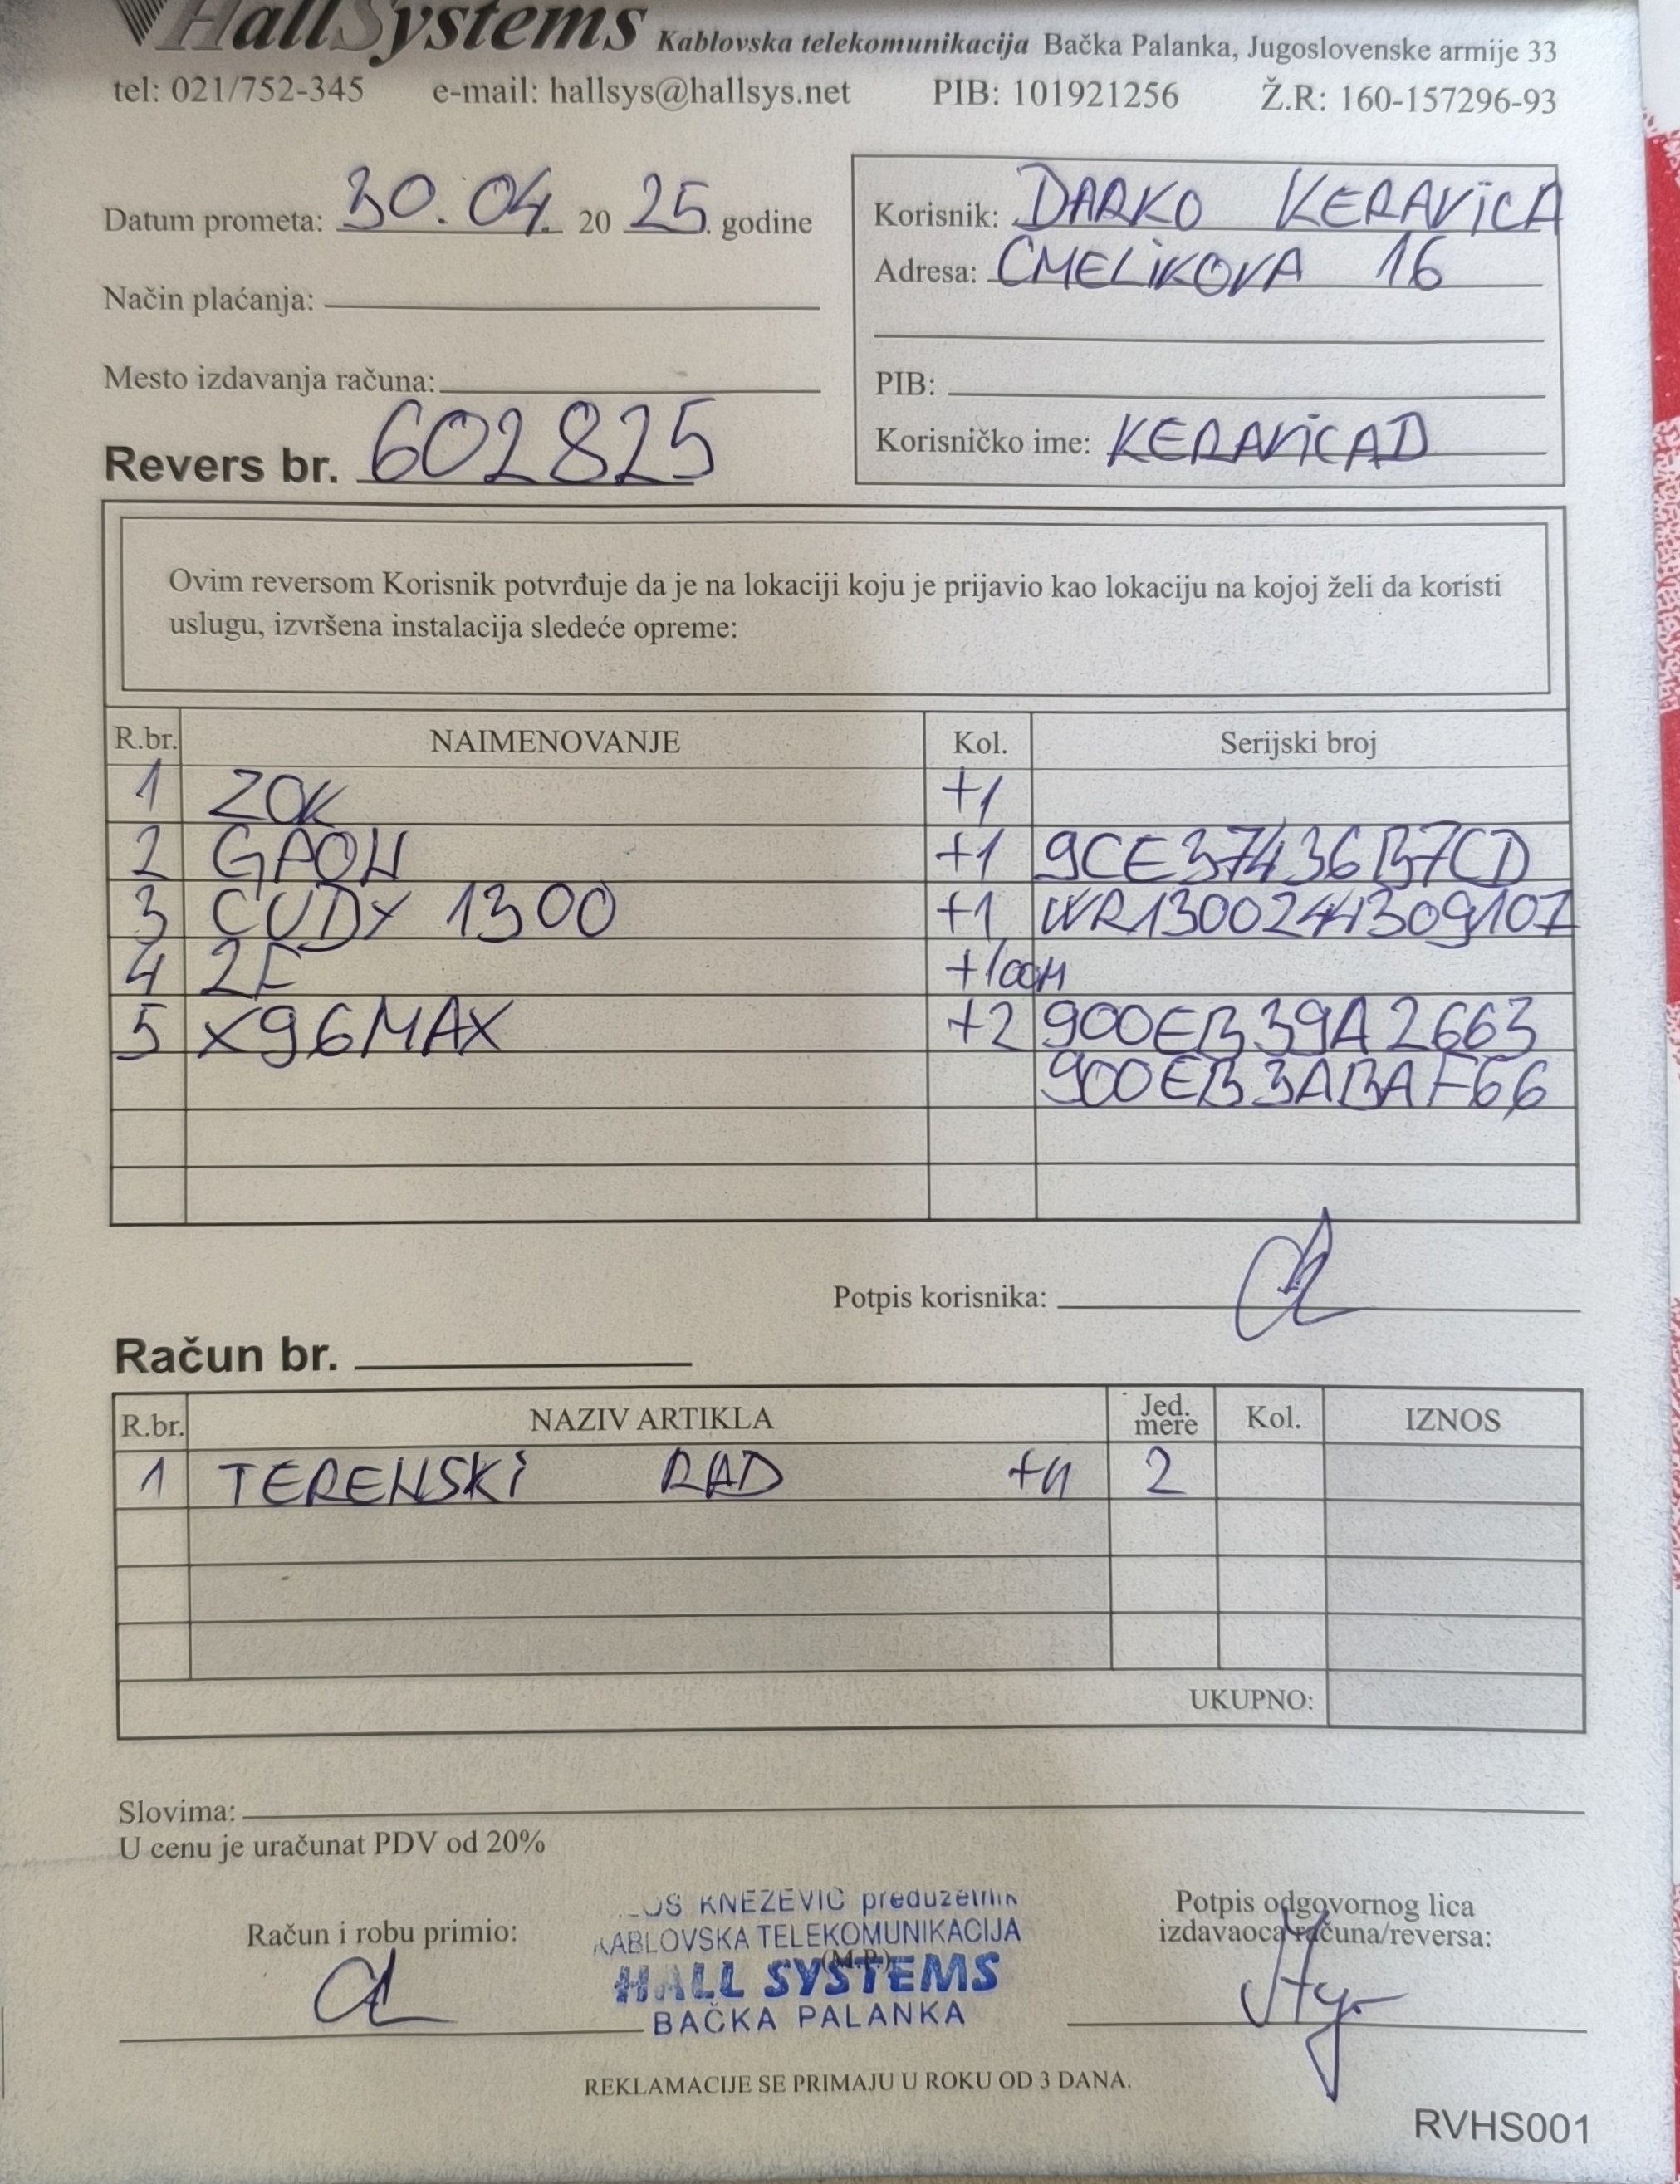 HallSystems Kablovska telekomunikacija Bačka Palanka, Jugoslovenske armije 33
tel: 021/752-345 e-mail: hallsys@hallsys.net PIB: 101921256 Ž.R: 160-157296-93
Datum prometa: 30.04. 20 25. godine
Način plaćanja:
Mesto izdavanja računa:
Revers br. 602825
Korisnik: DARKO KERAVICA
Adresa: CMELIKOVA 16
PIB:
Korisničko ime: KERAVICAD
Ovim reversom Korisnik potvrđuje da je na lokaciji koju je prijavio kao lokaciju na kojoj želi da koristi
uslugu, izvršena instalacija sledeće opreme:
R.br. NAIMENOVANJE Kol. Serijski broj
1 ZOK +1
2 GPON +1 9CE37436B7CD
3 CUDY 1300 +1 WR1300244309107
4 2F +100M
5 X96MAX +2 900EB39A2663
900EB3ABAF66
Potpis korisnika:
Račun br.
R.br. NAZIV ARTIKLA Jed. mere Kol. IZNOS
1 TERENSKI RAD 2
UKUPNO:
Slovima:
U cenu je uračunat PDV od 20%
Račun i robu primio:
KNEZEVIC preduzetnik
KABLOVSKA TELEKOMUNIKACIJA
(M.P.)
HALL SYSTEMS
BAČKA PALANKA
Potpis odgovornog lica
izdavaoca računa/reversa:
REKLAMACIJE SE PRIMAJU U ROKU OD 3 DANA.
RVHS001